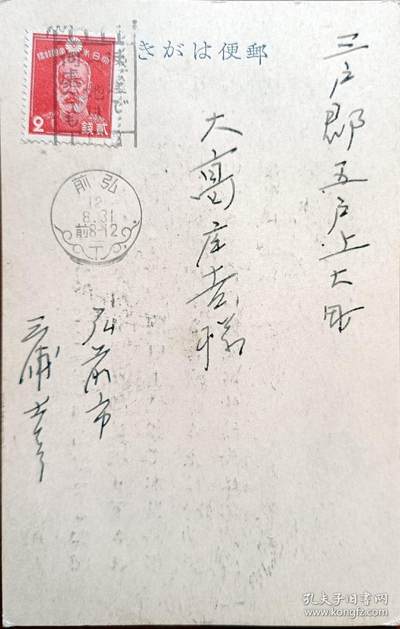 きがは便郵
三戸郡五戸上大町
大高庄吉様
弘前市
三浦
大日本帝國郵便
2
貳錢
前弘
12
8.31
前8-12
孔夫子旧书网